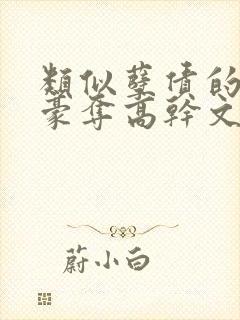 類似孽债的
豪奪高幹文
蔚小白